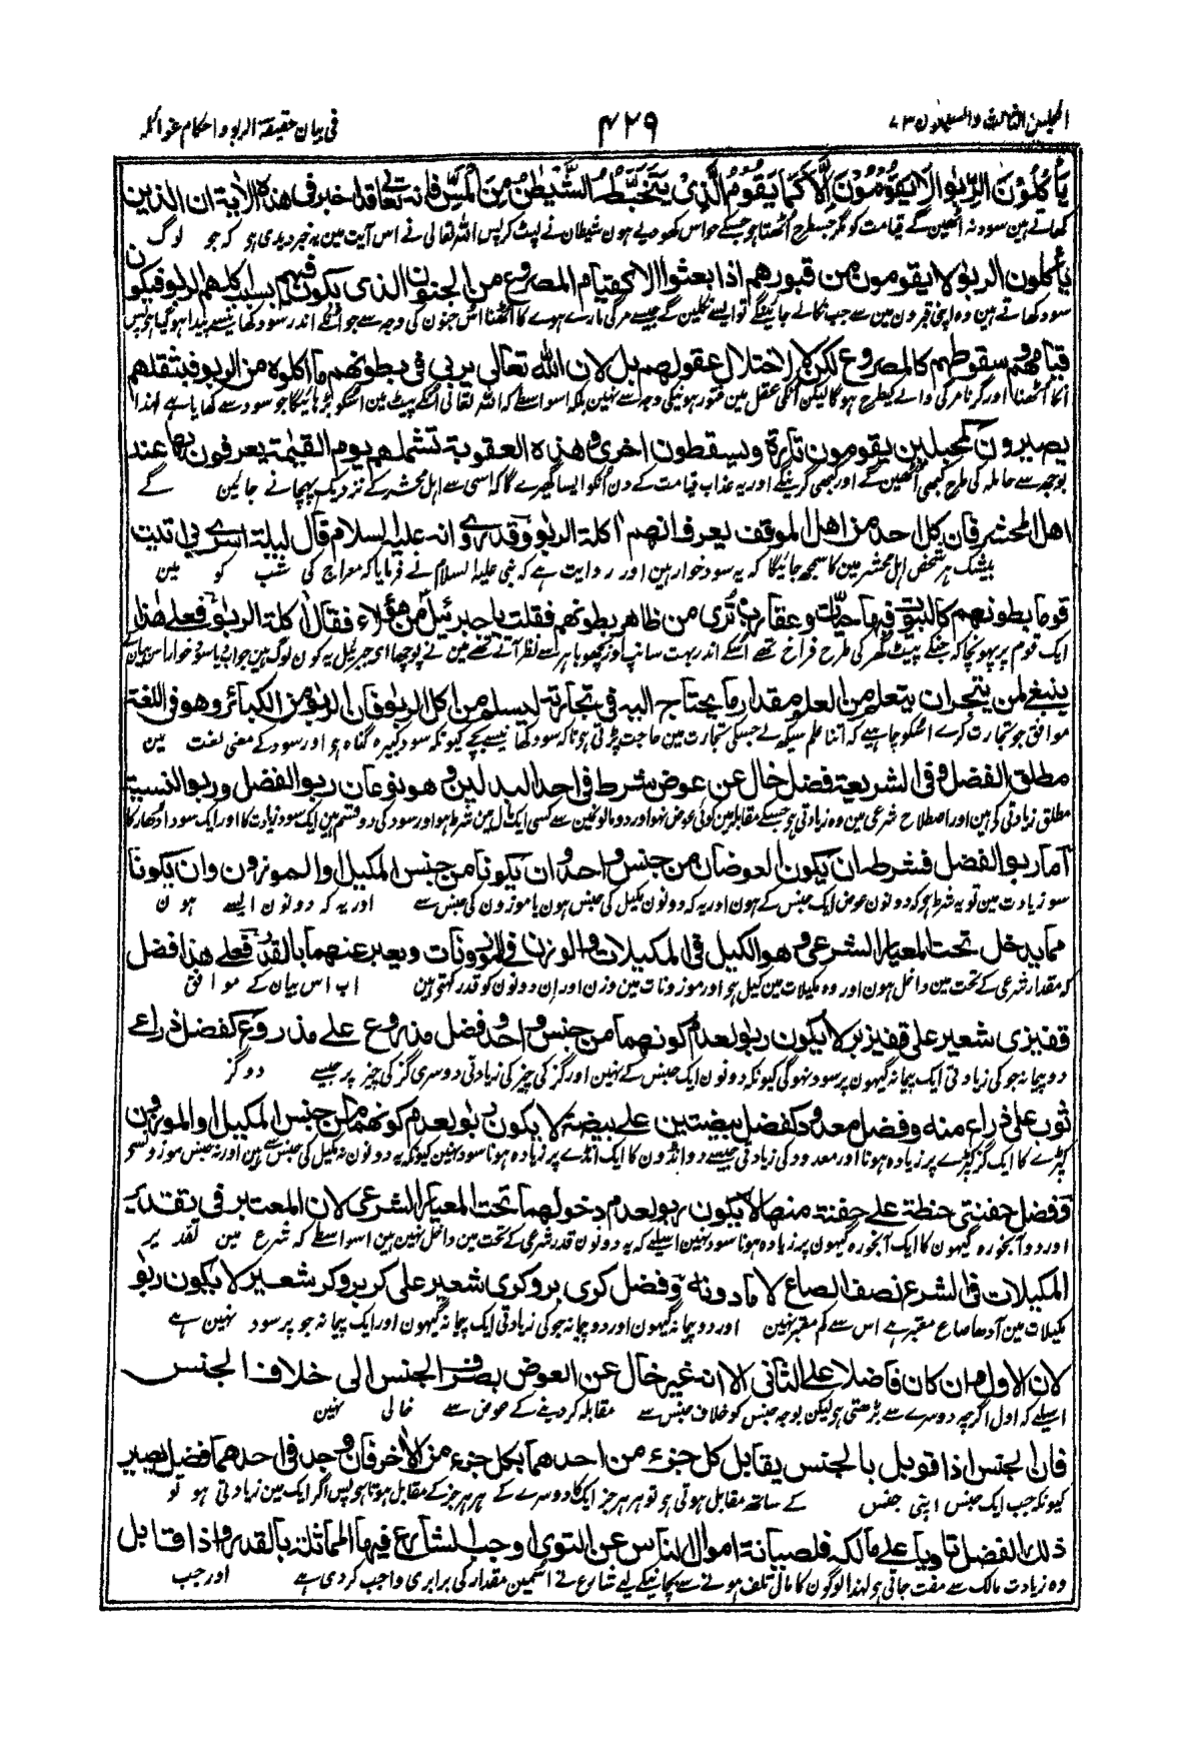 المجلس الثالث والسبعون ٧٣
٤٢٩
فی بیان حقیقة الربو واحکام غوائله
یَأْکُلُوْنَ الرِّبٰوا لَا یَقُوْمُوْنَ اِلَّا کَمَا یَقُوْمُ الَّذِیْ یَتَخَبَّطُهُ الشَّیْطٰنُ مِنَ الْمَسِّ فانه تعالی قد اخبر فی هذه الاٰیة ان الذین
کھاتے ہین سود نہ اٹھین گے قیامت کو مگر جسطرح اُٹھتا ہو جسکے حواس کھو دیے ہون شیطان نے لپٹ کر پس اللہ تعالی نے اس آیت مین یہ خبر دیدی ہو کہ جو لوگ
یأکلون الربوٰ لا یقومون من قبورهم اذا بعثوا الا کقیام المصروع من الجنون الذی یکون فیهم بسبب اکلهم الربو فیکون
سود کھاتے ہین وہ اپنی قبرون مین سے جب نکالے جائینگے تو ایسے نکلین گے جیسے مرگی مارے ہوے کا اُٹھنا اُس جنون کی وجہ سے جو اُنکے اندر سود کھانیسے پیدا ہو گیا ہو پس
قیامهم وسقوطهم کالمصروع لکن لا لاختلال عقولهم بل لان الله تعالی یربی فی بطونهم ما اکلوه من الربو فیثقلهم
انکا اُٹھنا اور گرنا مرگی والے کیطرح ہوگا لیکن انکی عقل مین فتور ہونیکی وجہ سے نہین بلکہ اسواسطے کہ اللہ تعالی اُنکے پیٹ مین اُسکو بڑھائیگا جو سود سے کھایا ہے لہذا
یصیرون کحبلین یقومون تارة ویسقطون اخری وهذه العقوبة تشملهم یوم القیٰمة یعرفون بها عند
بوجھ سے حاملہ کی طرح کبھی اُٹھین گے اور کبھی گرینگے اور یہ عذاب قیامت کے دن اُنکو ایسا گھیرے گا کہ اسی سے اہل محشر کے نزدیک پہچانے جائین گے
اهل المحشر فان کل احد من اهل الموقف یعرف انهم اکلة الربو وقد روی انه علیه السلام قال لیلة اسری بی اتیت
بیشک ہر شخص اہل محشر مین کا سمجھ جائیگا کہ یہ سود خوار ہین اور روایت ہے کہ نبی علیہ السلام نے فرمایا کہ معراج کی شب کو مین
قوما بطونهم کالبیوت فیها حیات وعقارب تُری من ظاهر بطونهم فقلت یا جبرئیل من هؤلاء فقال اکلة الربو فعلی هذا
ایک قوم پر پہونچا کہ جنکے پیٹ گھر کی طرح فراخ تھے اُنکے اندر بہت سانپ اور بچھو باہر سے نظر آتے تھے مین نے پوچھا ای جبرئیل یہ کون لوگ ہین جواب دیا سود خوار اس بیان
ینبغی لمن یتجر ان یتعلم من العلم مقدار ما یحتاج الیه فی تجارته لیسلم من اکل الربو فان الربو من الکبائر وهو فی اللغة
موافق جو تجارت کرے اُسکو چاہیے کہ اتنا علم سیکھ لے جسکی تجارت مین حاجت پڑتی ہو تا کہ سود کھانیسے بچے کیونکہ سود کبیرہ گناہ ہو اور سود کے معنی لغت مین
مطلق الفضل وفی الشریعة فضل خال عن عوض شرط فی احد البدلین وهو نوعان ربو الفضل وربو النسیة
مطلق زیادتی کے ہین اور اصطلاح شرعی مین وہ زیادتی ہو جسکے مقابلہ مین کوئی عوض نہو اور دو مالونمین سے کسی ایک مال مین شرط ہو اور سود کی دو قسم ہین ایک سود زیادت کا اور ایک سود ادھار کا
اما ربو الفضل فشرطه ان یکون العوضان من جنس واحد وان یکونا من جنس المکیل او الموزون وان یکونا
سو زیادت مین تو یہ شرط ہو کہ دونون عوض ایک جنس کے ہون اور یہ کہ دونون مکیل کی جنس ہون یا موزون کی جنس سے اور یہ کہ دونون ایسے ہون
مما یدخل تحت المعیار الشرعی وهو الکیل فی المکیلات والوزن فی الموزونات ویعبر عنهما بالقدر فعلی هذا فضل
کہ مقدار شرعی کے تحت مین داخل ہون اور وہ مکیلات مین کیل ہو اور موزونات مین وزن اور ان دونون کو قدر کہتے ہین اب اس بیان کے موافق
قفیزی شعیر علی قفیز بر لا یکون ربو لعدم کونهما من جنس واحد وفضل مذروع علی مذروع کفضل ذراعی
دو پیمانہ جو کی زیادتی ایک پیمانہ گیہون پر سود نہوگی کیونکہ دونون ایک جنس کے نہین اور گز کی چیز کی زیادتی دوسری گز کی چیز پر جیسے دو گز
ثوب علی ذراع منه وفضل معدود کفضل بیضتین علی بیضة لا یکون ربو لعدم کونهما من جنس المکیل او الموزون
کپڑے کا ایک گز کپڑے پر زیادہ ہونا اور معدود کی زیادتی جیسے دو انڈون کا ایک انڈے پر زیادہ ہونا سود نہین کیونکہ یہ دونون نہ مکیل کی جنس سے ہین اور نہ جنس موزون سے
وفضل حفنتی حنطة علی حفنة منها لا یکون ربو لعدم دخولهما تحت المعیار الشرعی لان المعتبر فی تقدیر
اور دو آبخورہ گیہون کا ایک آبخورہ گیہون پر زیادہ ہونا سود نہین اسیلے کہ یہ دونون قدر شرعی کے تحت مین داخل نہین ہین اسواسطے کہ شرع مین تقدیر
المکیلات فی الشرع نصف الصاع لا ما دونه وفضل کری بر وکری شعیر علی کر بر وکر شعیر لا یکون ربو
مکیلات مین آدھا صاع معتبر ہے اس سے کم معتبر نہین اور دو پیمانہ گیہون اور دو پیمانہ جو کی زیادتی ایک پیمانہ گیہون اور ایک پیمانہ جو پر سود نہین ہے
لان الاول وان کان فاضلا علی الثانی الا انه غیر خال عن العوض بصرف الجنس الی خلاف الجنس
اسیلے کہ اول اگرچہ دوسرے سے بڑھتی ہو لیکن بوجہ جنس کو خلاف جنس سے مقابلہ کر دینے کے عوض سے خالی نہین
فان الجنس اذا قوبل بالجنس یقابل کل جزء من احدهما بکل جزء من الاٰخر فان وجد فی احدهما فضل یصیر
کیونکہ جب ایک جنس اپنی جنس کے ساتھ مقابل ہوتی ہو تو ہر ہر جز ایک کا دوسرے کے ہر ہر جز کے مقابل ہوتا ہو پس اگر ایک مین زیادتی ہو تو
ذلک الفضل تاویا علی مالکه فلصیانة اموال الناس عن التوی اوجب الشارع فیها المماثلة بالقدر واذا قابل
وہ زیادت مالک سے مفت جاتی ہو لہذا لوگون کا مال تلف ہونے سے بچانیکے لیے شارع نے اسمین مقدار کی برابری واجب کر دی ہے اور جب